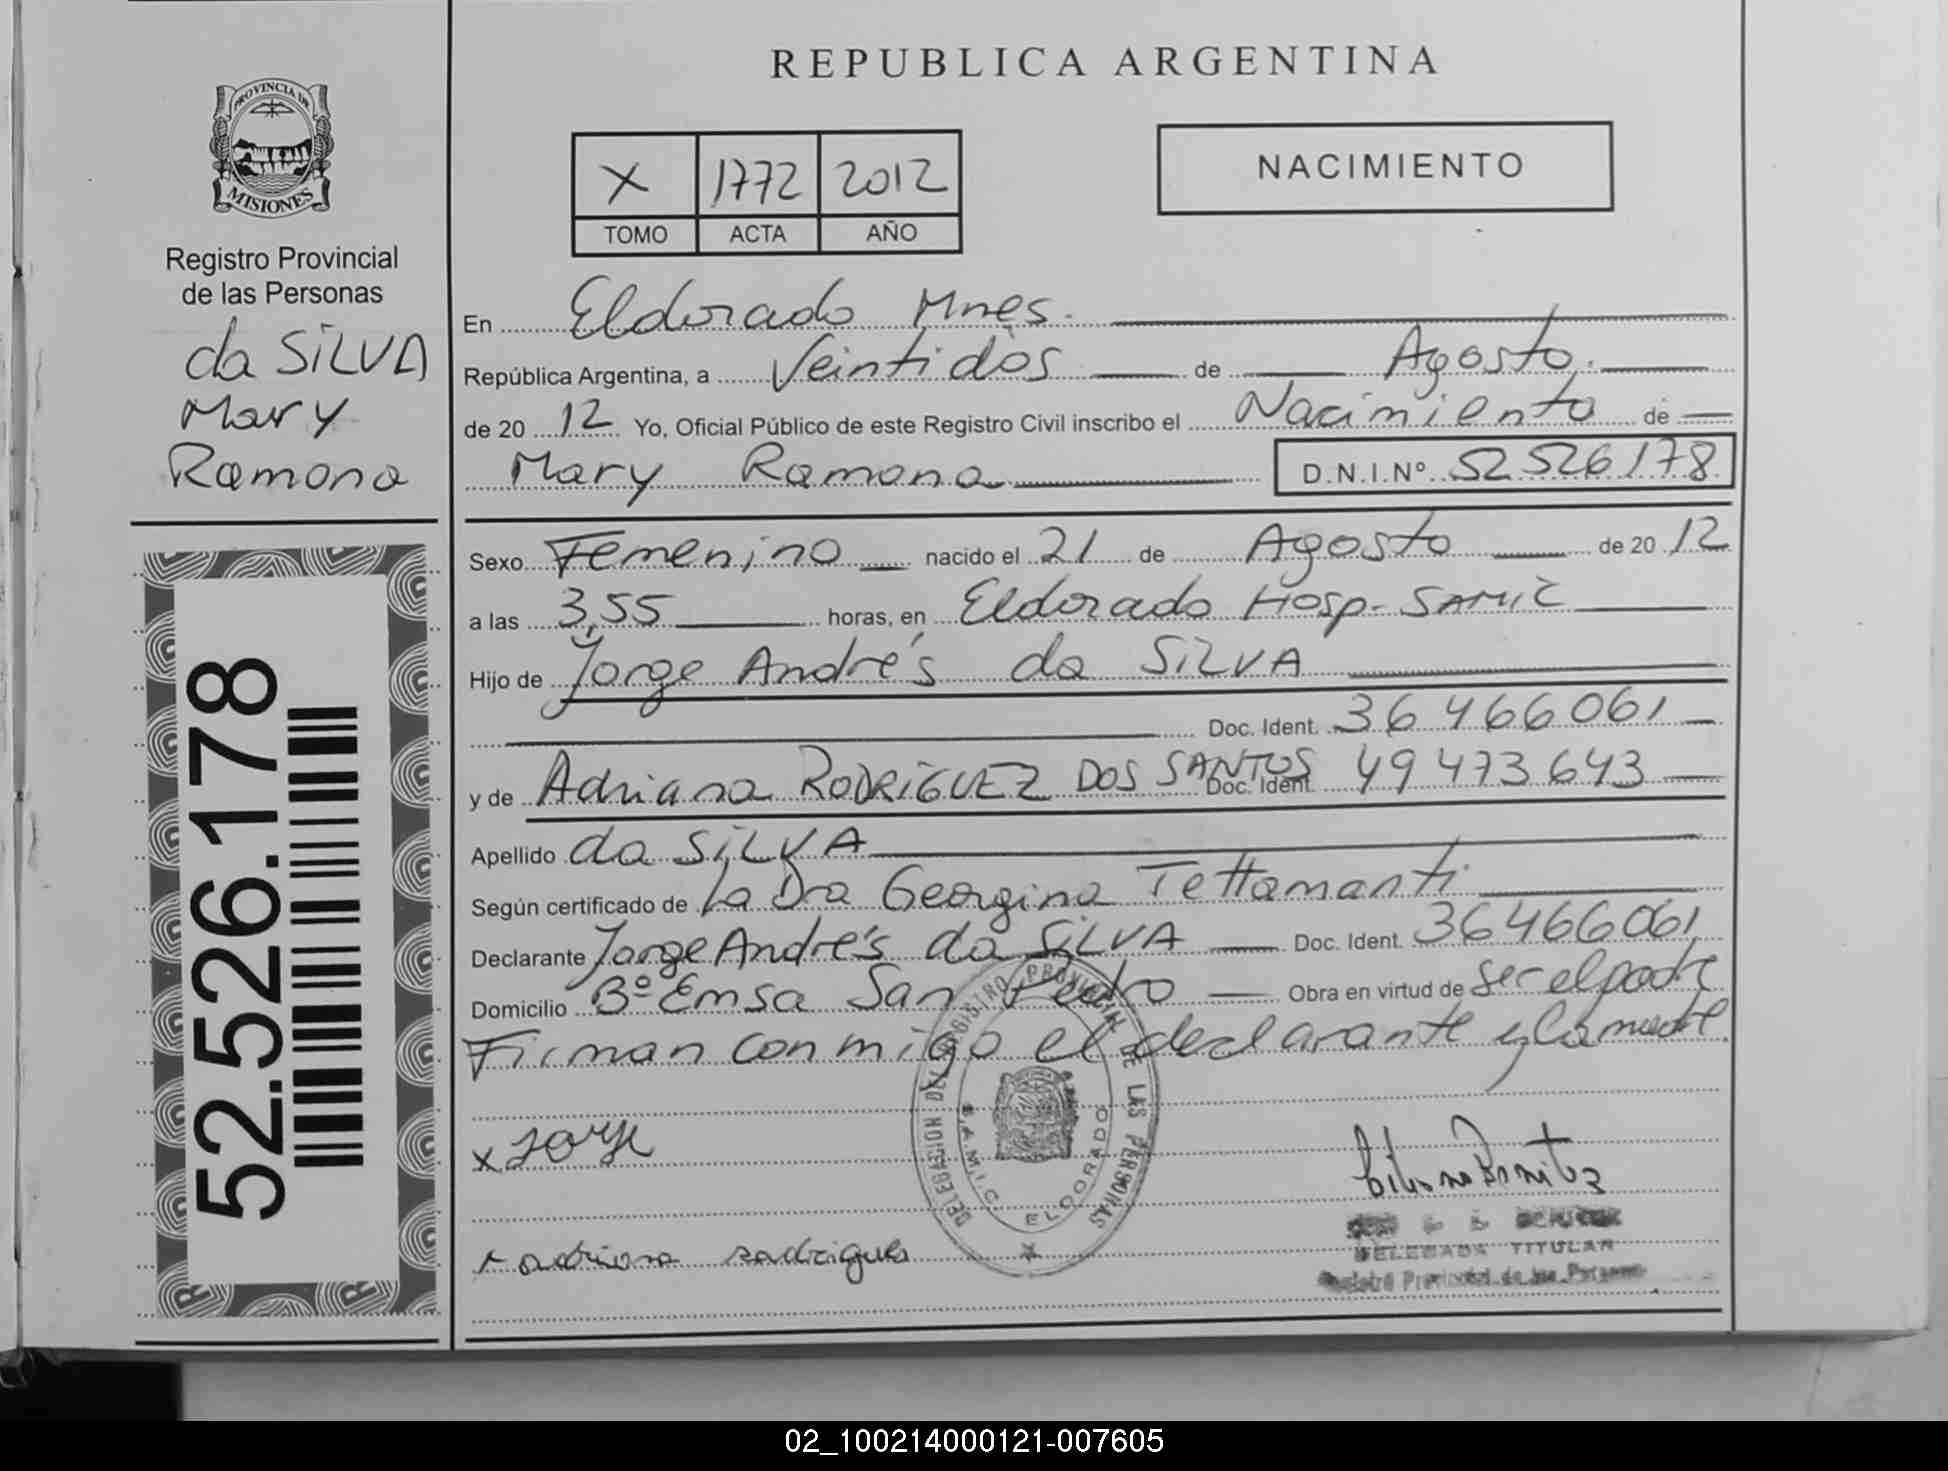 REPUBLICA ARGENTINA
PROVINCIA DE
MISIONES
Registro Provincial
de las Personas
da SILVA
Mary
Ramona
52.526.178
X 1772 2012
TOMO ACTA AÑO
NACIMIENTO
En Eldorado Mnes.
República Argentina, a Veintidòs de Agosto
de 20 12 Yo, Oficial Público de este Registro Civil inscribo el Nacimiento de
Mary Ramona D.N.I.Nº 52 526 178
Sexo Femenino nacido el 21 de Agosto de 20 12
a las 3,55 horas, en Eldorado Hosp- SAMIC
Hijo de Jorge Andrés da SILVA
Doc. Ident. 36 466 061
y de Adriana RODRIGUEZ DOS SANTOS Doc. Ident. 49 473 643
Apellido da SILVA
Según certificado de La Dra Georgina Tettamanti
Declarante Jorge Andrés da SILVA Doc. Ident. 36466061
Domicilio Bº Emsa San Pedro Obra en virtud de Ser el padre
Firman conmigo el declarante y la madre
DELEGACION DEL REGISTRO PROVINCIAL DE LAS PERSONAS
S.A.M.I.C. ELDORADO
x Jorge
x adriana rodrigues
DELEGADA TITULAR
Registro Provincial de las Personas
02_100214000121-007605